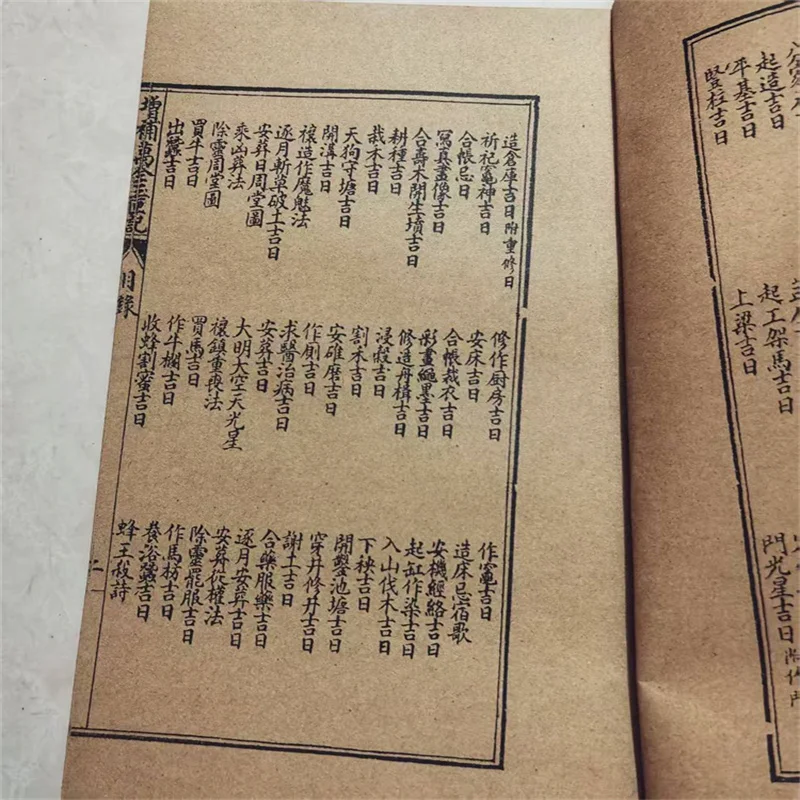 起造吉日 起工架馬吉日 門光星吉日
平基吉日 上梁吉日
豎柱吉日
造倉庫吉日附重修日 修作厨房吉日 作竈吉日
祈祀竈神吉日 安床吉日 造床忌宿歌
合帳忌日 合帳裁衣吉日 安機經絡吉日
寫真畫像吉日 彩畫繩墨吉日 起缸作染吉日
合壽木開生墳吉日 修造舟楫吉日 入山伐木吉日
耕種吉日 浸穀吉日 下秧吉日
栽禾吉日 割禾吉日 開鑿池塘吉日
天狗守塘吉日 安碓磨吉日 穿井修井吉日
開溝吉日 作厠吉日 謝土吉日
禳造作魔魅法 求醫治病吉日 合藥服藥吉日
逐月斬草破土吉日 安葬吉日 逐月安葬吉日
安葬日周堂圖 大明大空天光星 安葬從權法
乘凶葬法 禳鎮重喪法 除靈罷服吉日
除靈周堂圖 買馬吉日 作馬枋吉日
買牛吉日 作牛欄吉日 養浴蠶吉日
出蠶吉日 收蜂割蜜吉日 蜂王殺詩
增補萬全玉匣記 目錄 二